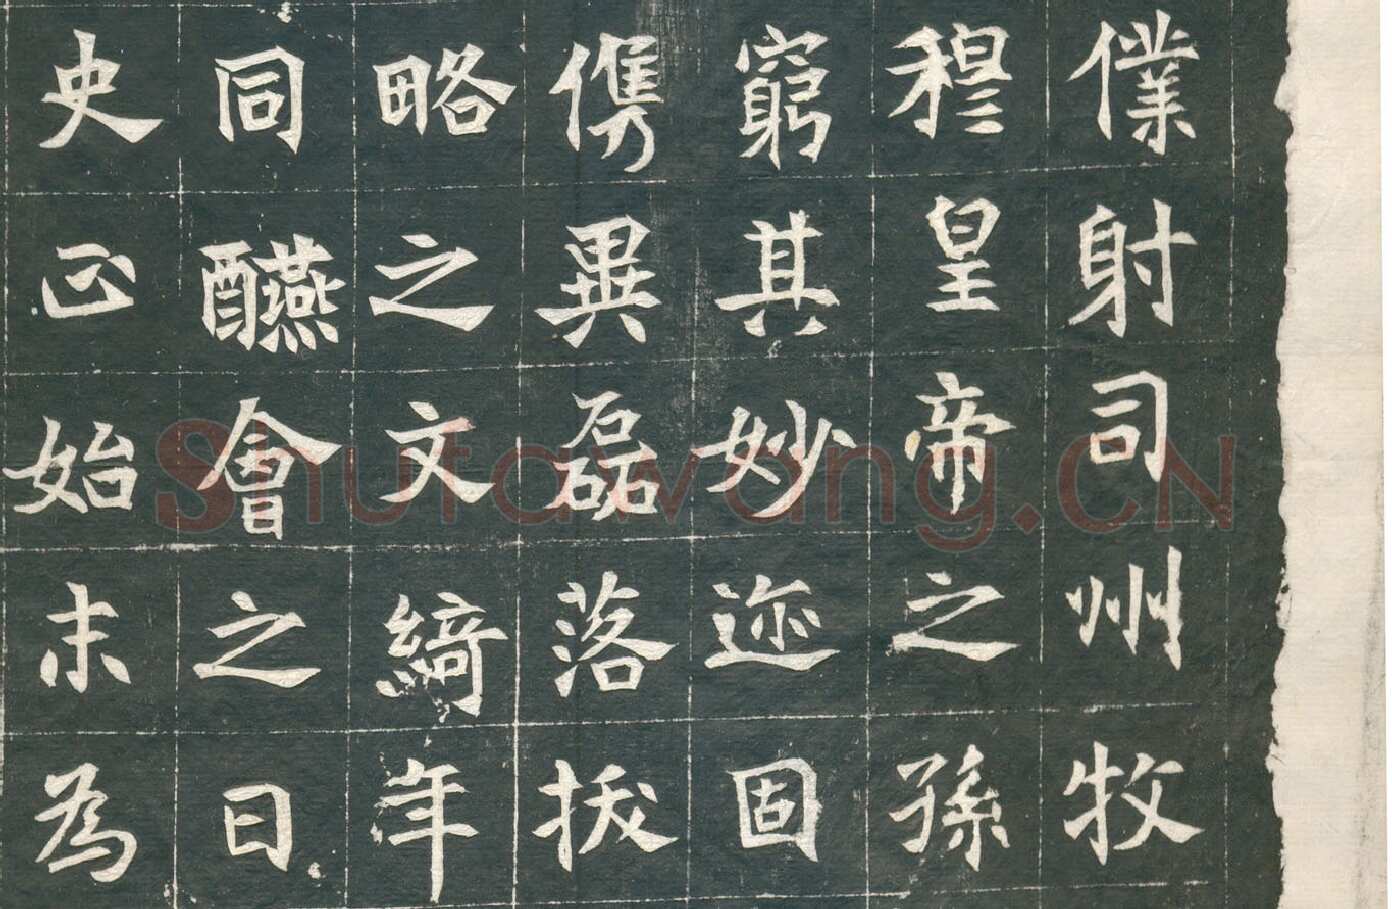 僕射司州牧
穆皇帝之孫
窮其妙迹固
儁異磊落拔
略之文綺年
同醼會之日
史正始末為
Shufawang.CN